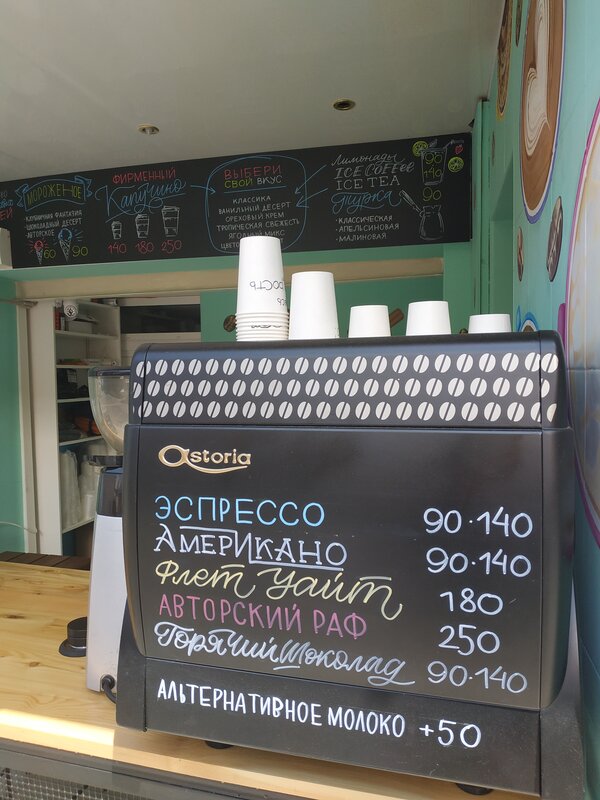 МОРОЖЕНОЕ
· КЛУБНИЧНАЯ ФАНТАЗИЯ
· ШОКОЛАДНЫЙ ДЕСЕРТ
АВТОРСКОЕ
60 90
ФИРМЕННЫЙ
Капучино
140 180 250
ВЫБЕРИ
СВОЙ ВКУС
КЛАССИКА
ВАНИЛЬНЫЙ ДЕСЕРТ
ОРЕХОВЫЙ КРЕМ
ТРОПИЧЕСКАЯ СВЕЖЕСТЬ
ЯГОДНЫЙ МИКС
Лимонады
ICE COFFEE
ICE TEA
90
149
Джурка
90
· КЛАССИЧЕСКАЯ
· АПЕЛЬСИНОВАЯ
· МАЛИНОВАЯ
astoria
ЭСПРЕССО 90·140
АМЕРИКАНО 90·140
Флет уайт 180
АВТОРСКИЙ РАФ 250
Горячий Шоколад 90·140
АЛЬТЕРНАТИВНОЕ МОЛОКО +50